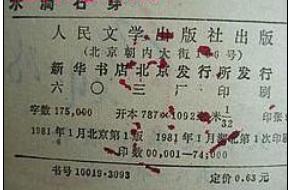 水滴石穿
人民文学出版社出版
(北京朝内大街166号)
新华书店北京发行所发行
六〇三厂印刷
字数 175,000 开本 787×1092 米 1/32 印张
1981年6月北京第1版 1981年 月湖北第1次印
印数 00,001—74,000
书号 10019·3093 定价 0.63 元